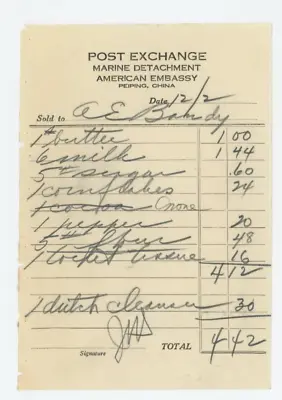 POST EXCHANGE
MARINE DETACHMENT
AMERICAN EMBASSY
PEIPING, CHINA
Date 12/2
Sold to A E Bandy
1# butter 1 00
6 milk 1 44
5# sugar .60
1 cornflakes 24
1 cocoa (none
1 pepper 20
5# flour 48
1 toilet tissue 16
4 12
1 dutch cleanser 30
Signature TOTAL 4 42